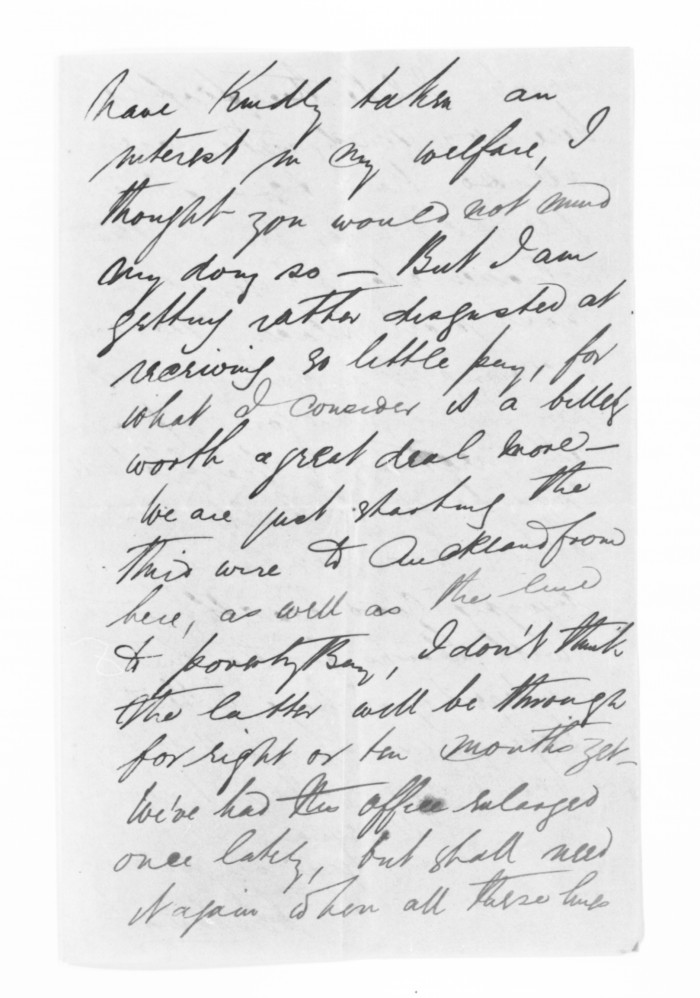 have Kindly taken an
interest in my welfare, I
thought you would not mind
my doing so — But I am
getting rather disgusted at
receiving so little pay, for
what I consider is a billet
worth a great deal more —
We are just starting the
third wire to Auckland from
here, as well as the line
to poverty Bay, I don't think
the latter will be through
for eight or ten months yet —
We've had the office enlarged
once lately, but shall need
it again when all these lines